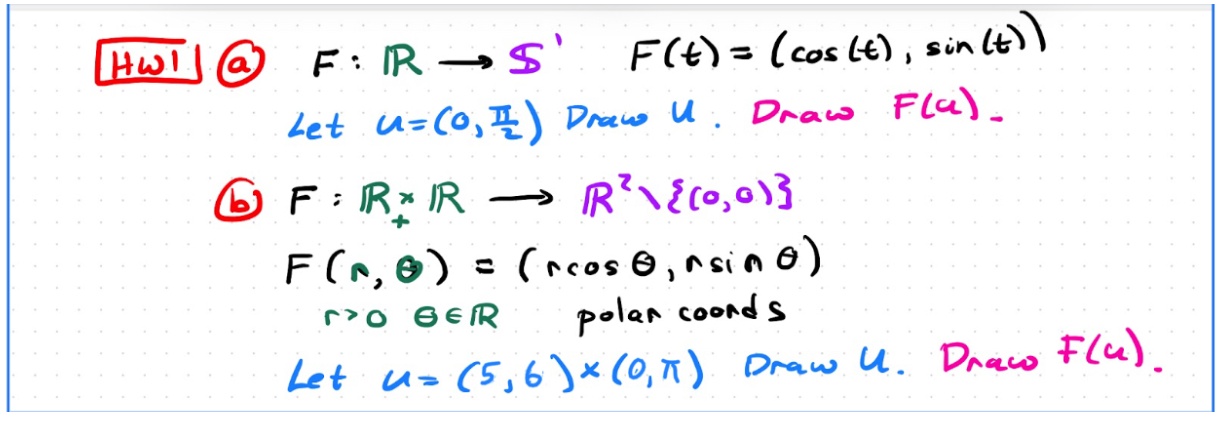 HW1 (a) F : ℝ → 𝕊¹ F(t) = (cos(t), sin(t))
Let U=(0, π/2) Draw U. Draw F(U).
(b) F : ℝ₊ × ℝ → ℝ² \ {(0,0)}
F(r, θ) = (r cos θ, r sin θ)
r>0 θ∈ℝ polar coords
Let U= (5,6)×(0,π) Draw U. Draw F(U).